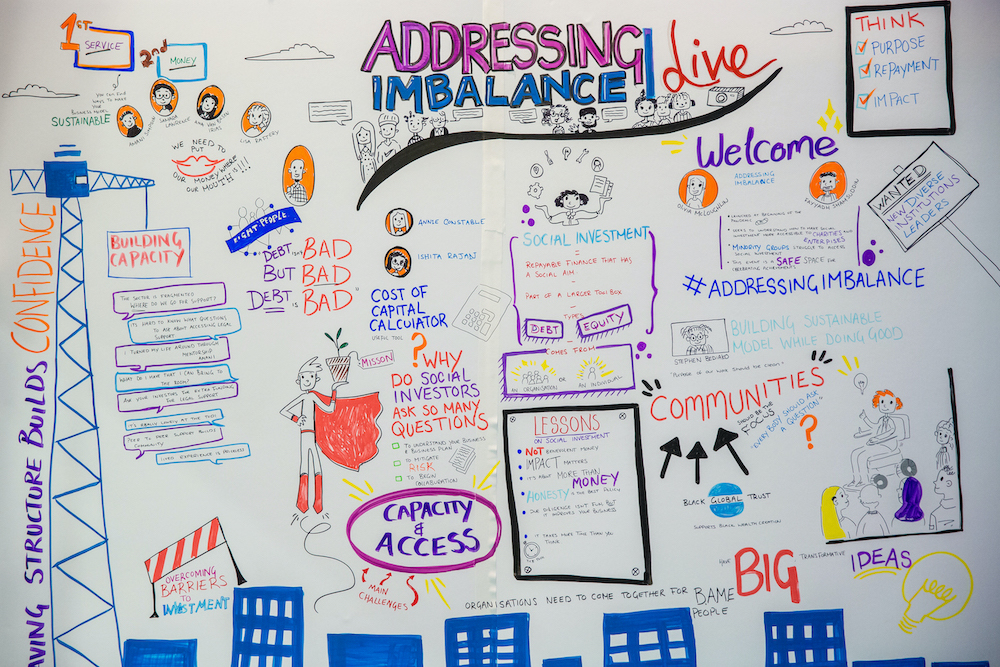 1ST
SERVICE
2nd
MONEY
you can find
ways to make
your
business model
SUSTAINABLE
LISA RAFTERY
WE NEED TO
PUT
OUR MONEY WHERE
OUR MOUTH IS!!!
ADDRESSING
IMBALANCE
Live
THINK
PURPOSE
REPAYMENT
IMPACT
Welcome
ADDRESSING
IMBALANCE
OLIVIA McLOUGHLIN
LAUNCHED AT BEGINNING OF THE
PANDEMIC
SEEKS TO UNDERSTAND HOW TO MAKE SOCIAL
INVESTMENT MORE ACCESSIBLE TO CHARITIES AND
ENTERPRISES
MINORITY GROUPS STRUGGLE TO ACCESS
SOCIAL INVESTMENT
THIS EVENT IS A SAFE SPACE FOR
#ADDRESSINGIMBALANCE
WANTED
NEW DIVERSE
INSTITUTIONS
LEADERS
STEPHEN BEDIAKO
BUILDING SUSTAINABLE
MODEL WHILE DOING GOOD
"PURPOSE OF ANY WORK SHOULD THE COMMON"
CONFIDENCE
AVING STRUCTURE BUILDS
BUILDING
CAPACITY
THE SECTOR IS FRAGMENTED
WHERE DO WE GO FOR SUPPORT?
IT'S HARD TO KNOW WHAT QUESTIONS
TO ASK ABOUT ACCESSING LEGAL
SUPPORT
I TURNED MY LIFE AROUND THROUGH
MENTORSHIP
AGAIN!
WHAT DO I HAVE THAT I CAN BRING TO
THE ROOM?
ASK YOUR INVESTORS FOR EXTRA FUNDING
FOR LEGAL SUPPORT
IT'S REALLY LONELY AT THE TOP!
PEER TO PEER SUPPORT BUILDS
COMMUNITY
LIVED EXPERIENCE IS PRICELESS
RIGHT PEOPLE
DEBT IS BAD
BUT BAD
DEBT IS BAD"
ANNIE CONSTABLE
ISHITA RAJANI
COST OF
CAPITAL
CALCULATOR
USEFUL TOOL
SOCIAL INVESTMENT
=
REPAYABLE FINANCE THAT HAS
A SOCIAL AIM
PART OF A LARGER TOOLBOX
TYPES
DEBT
EQUITY
COMES FROM
AN ORGANISATION
OR
AN INDIVIDUAL
MISSON
? WHY
DO SOCIAL
INVESTORS
ASK SO MANY
QUESTIONS
TO UNDERSTAND YOUR BUSINESS
& BUSINESS PLAN
TO MITIGATE
RISK
TO BEGIN
COLLABORATION
CAPACITY
&
ACCESS
MAIN
CHALLENGES
LESSONS
ON SOCIAL INVESTMENT
NOT BENEVOLENT MONEY
IMPACT MATTERS
IT'S ABOUT MORE THAN
MONEY
HONESTY IS THE BEST POLICY
DUE DILIGENCE ISN'T FUN BUT
IT IMPROVES YOUR BUSINESS
IT TAKES MORE TIME THAN YOU
THINK
COMMUNITIES
SHOULD BE THE
FOCUS
"EVERY BODY SHOULD ASK
A QUESTION"
?
BLACK GLOBAL TRUST
SUPPORTS BLACK WEALTH CREATION
OVERCOMING
BARRIERS
TO
INVESTMENT
ORGANISATIONS NEED TO COME TOGETHER FOR BAME
PEOPLE
HAVE
BIG
TRANSFORMATIVE
IDEAS